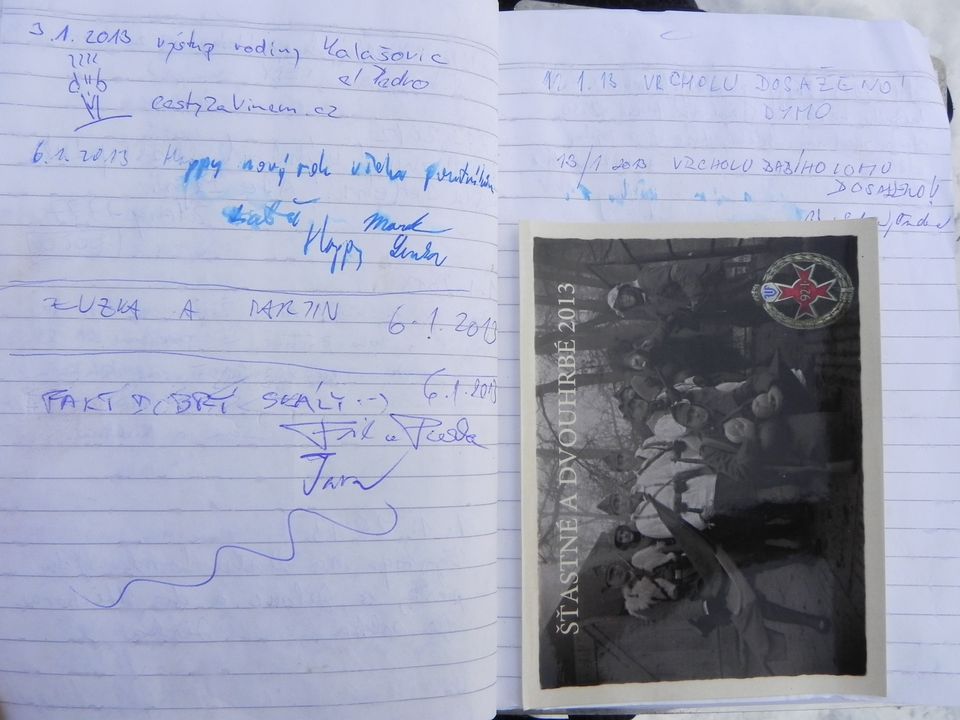 3.1.2013 výstup rodiny Kalašovic
el Pedro
cestyzavinem.cz
6.1.2013 Happy nový rok všem
Happy Mark
Lenka
ZUZKA A MARTIN 6.1.2013
6.1.2013
FAKT DOBRÝ SKÁLY :-)
Jara
1.13 VRCHOLU DOSAŽENO!
DYMO
13/1 2013 VRCHOLU BABÍHO LOMU
DOSAŽENO!
ŠŤASTNÉ A DVOUHRBÉ 2013
921